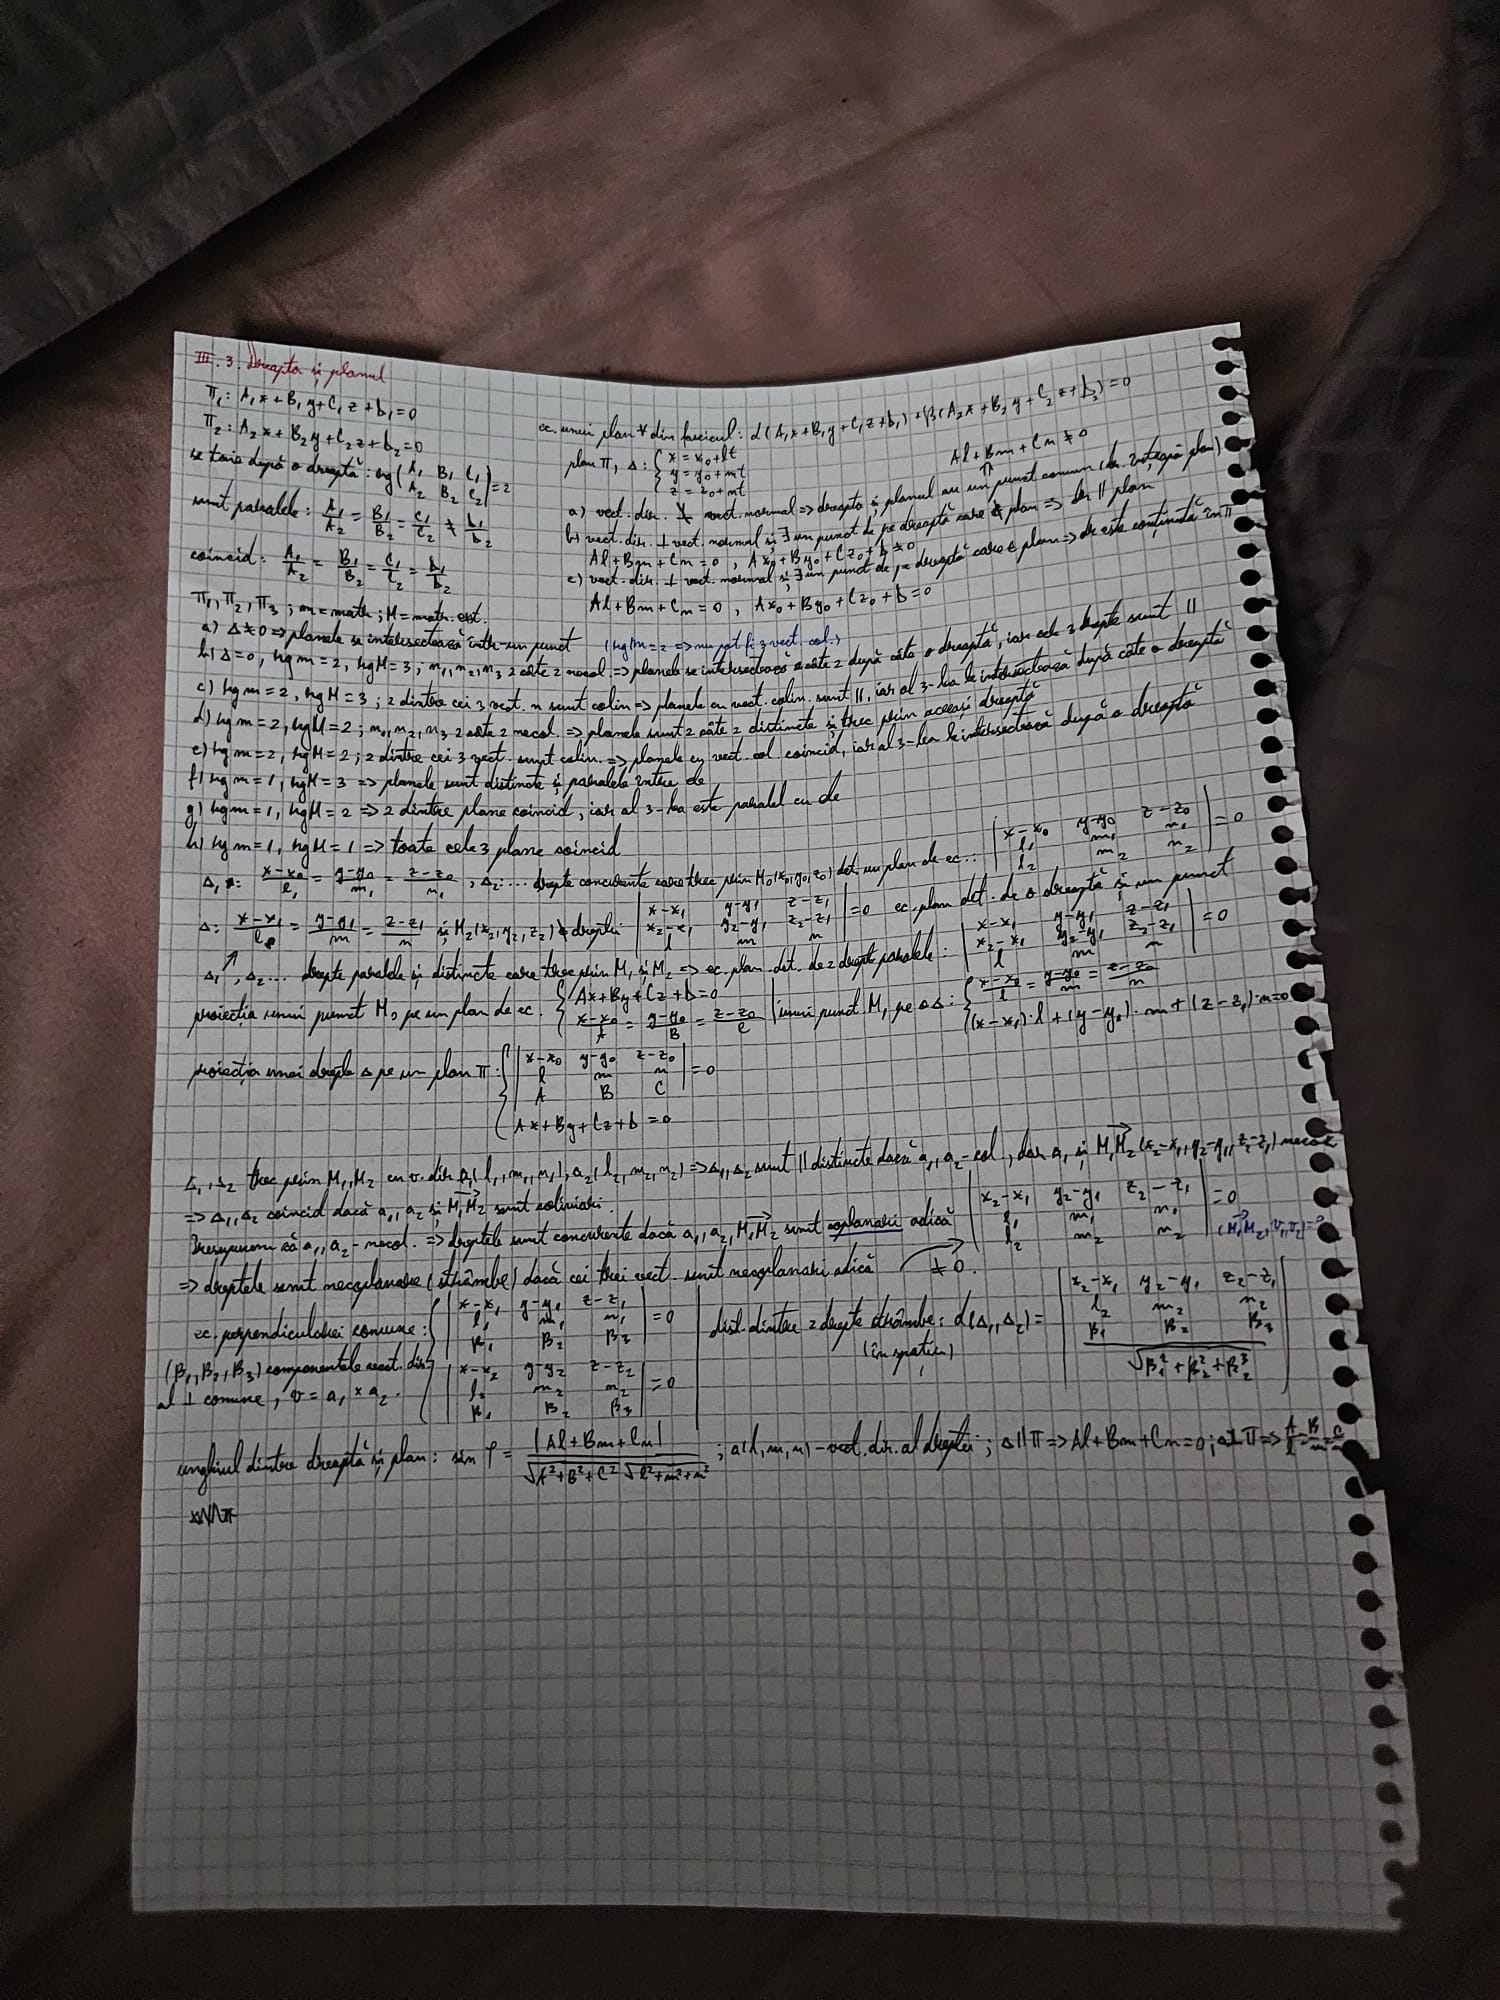 III. 3. Dreapta și planul
π₁: A₁x+B₁y+C₁z+D₁=0
π₂: A₂x+B₂y+C₂z+D₂=0
ec. unui plan ∀ din fascicul: α(A₁x+B₁y+C₁z+D₁)+β(A₂x+B₂y+C₂z+D₂)=0
se taie după o dreaptă: rg(A₁ B₁ C₁ / A₂ B₂ C₂)=2
plan π, Δ: { x=x₀+lt
y=y₀+mt
z=z₀+nt
Al+Bm+Cn≠0
sunt paralele: A₁/A₂ = B₁/B₂ = C₁/C₂ ≠ D₁/D₂
a) vect. dir. ⊥̸ vect. normal => dreapta și planul au un punct comun (dr. înțeapă plan)
b) vect. dir. ⊥ vect. normal și ∃ un punct de pe dreaptă care ∉ plan => dr || plan
Al+Bm+Cn=0, Ax₀+By₀+Cz₀+D≠0
coincid: A₁/A₂ = B₁/B₂ = C₁/C₂ = D₁/D₂
c) vect. dir. ⊥ vect. normal și ∃ un punct de pe dreaptă care ∈ plan => dr este conținută în π
Al+Bm+Cn=0, Ax₀+By₀+Cz₀+D=0
π₁, π₂, π₃; m=matr; M=matr. ext.
a) Δ≠0 => planele se intersectează într-un punct (rg m=2 => nu pot fi 3 vect. col.)
b) Δ=0, rg m=2, rg M=3; n₁, n₂, n₃ 2 câte 2 necol. => planele se intersectează câte 2 după câte o dreaptă, iar cele 3 drepte sunt ||
c) rg m=2, rg M=3; 2 dintre cei 3 vect. n sunt colin => planele cu vect. colin. sunt ||, iar al 3-lea le intersectează după câte o dreaptă
d) rg m=2, rg M=2; n₁, n₂, n₃ 2 câte 2 necol. => planele sunt 2 câte 2 distincte și trec prin aceeași dreaptă
e) rg m=2, rg M=2; 2 dintre cei 3 vect. sunt colin. => planele cu vect. col coincid, iar al 3-lea le intersectează după o dreaptă
f) rg m=1, rg M=3 => planele sunt distincte și paralele între ele
g) rg m=1, rg M=2 => 2 dintre plane coincid, iar al 3-lea este paralel cu ele
h) rg m=1, rg M=1 => toate cele 3 plane coincid
Δ₁: (x-x₀)/l₁ = (y-y₀)/m₁ = (z-z₀)/n₁, Δ₂: ... drepte concurente care trec prin M₀(x₀,y₀,z₀) det. un plan de ec.: |x-x₀ y-y₀ z-z₀ / l₁ m₁ n₁ / l₂ m₂ n₂|=0
Δ: (x-x₁)/l = (y-y₁)/m = (z-z₁)/n și M₂(x₂,y₂,z₂) ∉ dreptei |x-x₁ y-y₁ z-z₁ / x₂-x₁ y₂-y₁ z₂-z₁ / l m n|=0 ec. plan det. de o dreaptă și un punct
Δ₁, Δ₂ ... drepte paralele și distincte care trec prin M₁ și M₂ => ec. plan det. de 2 drepte paralele: |x-x₁ y-y₁ z-z₁ / x₂-x₁ y₂-y₁ z₂-z₁ / l m n|=0
proiecția unui punct M₀ pe un plan de ec. { Ax+By+Cz+D=0 / (x-x₀)/A = (y-y₀)/B = (z-z₀)/C | unui punct M₁ pe o Δ: { (x-x₀)/l = (y-y₀)/m = (z-z₀)/n / (x-x₁)·l+(y-y₁)·m+(z-z₁)·n=0
proiecția unei drepte Δ pe un plan π: { |x-x₀ y-y₀ z-z₀ / l m n / A B C|=0
Ax+By+Cz+D=0
Δ₁, Δ₂ trec prin M₁, M₂ cu v. dir. a₁(l₁,m₁,n₁), a₂(l₂,m₂,n₂) => Δ₁, Δ₂ sunt || distincte dacă a₁, a₂-col, dar a₁ și M₁M₂(x₂-x₁,y₂-y₁,z₂-z₁) necol
=> Δ₁, Δ₂ coincid dacă a₁, a₂ și M₁M₂ sunt coliniari.
Presupunem că a₁, a₂-necol. => dreptele sunt concurente dacă a₁, a₂, M₁M₂ sunt coplanari adică |x₂-x₁ y₂-y₁ z₂-z₁ / l₁ m₁ n₁ / l₂ m₂ n₂|=0 (M₁M₂, v₁, v₂)=0
=> dreptele sunt necoplanare (strâmbe) dacă cei trei vect. sunt necoplanari adică ≠0.
ec. perpendicularei comune: { |x-x₁ y-y₁ z-z₁ / l₁ m₁ n₁ / β₁ β₂ β₃|=0
|x-x₂ y-y₂ z-z₂ / l₂ m₂ n₂ / β₁ β₂ β₃|=0
(β₁, β₂, β₃) componentele vect. dir.
al ⊥ comune, v=a₁×a₂.
dist. dintre 2 drepte strâmbe: d(Δ₁,Δ₂)= |x₂-x₁ y₂-y₁ z₂-z₁ / l₂ m₂ n₂ / β₁ β₂ β₃| / √(β₁²+β₂²+β₂³)
(în spațiu)
unghiul dintre dreaptă și plan: sin φ = |Al+Bm+Cn| / √(A²+B²+C²) √(l²+m²+n²); a(l,m,n)-vect. dir. al dreptei; Δ||π => Al+Bm+Cn=0; Δ⊥π => A/l=B/m=C/n